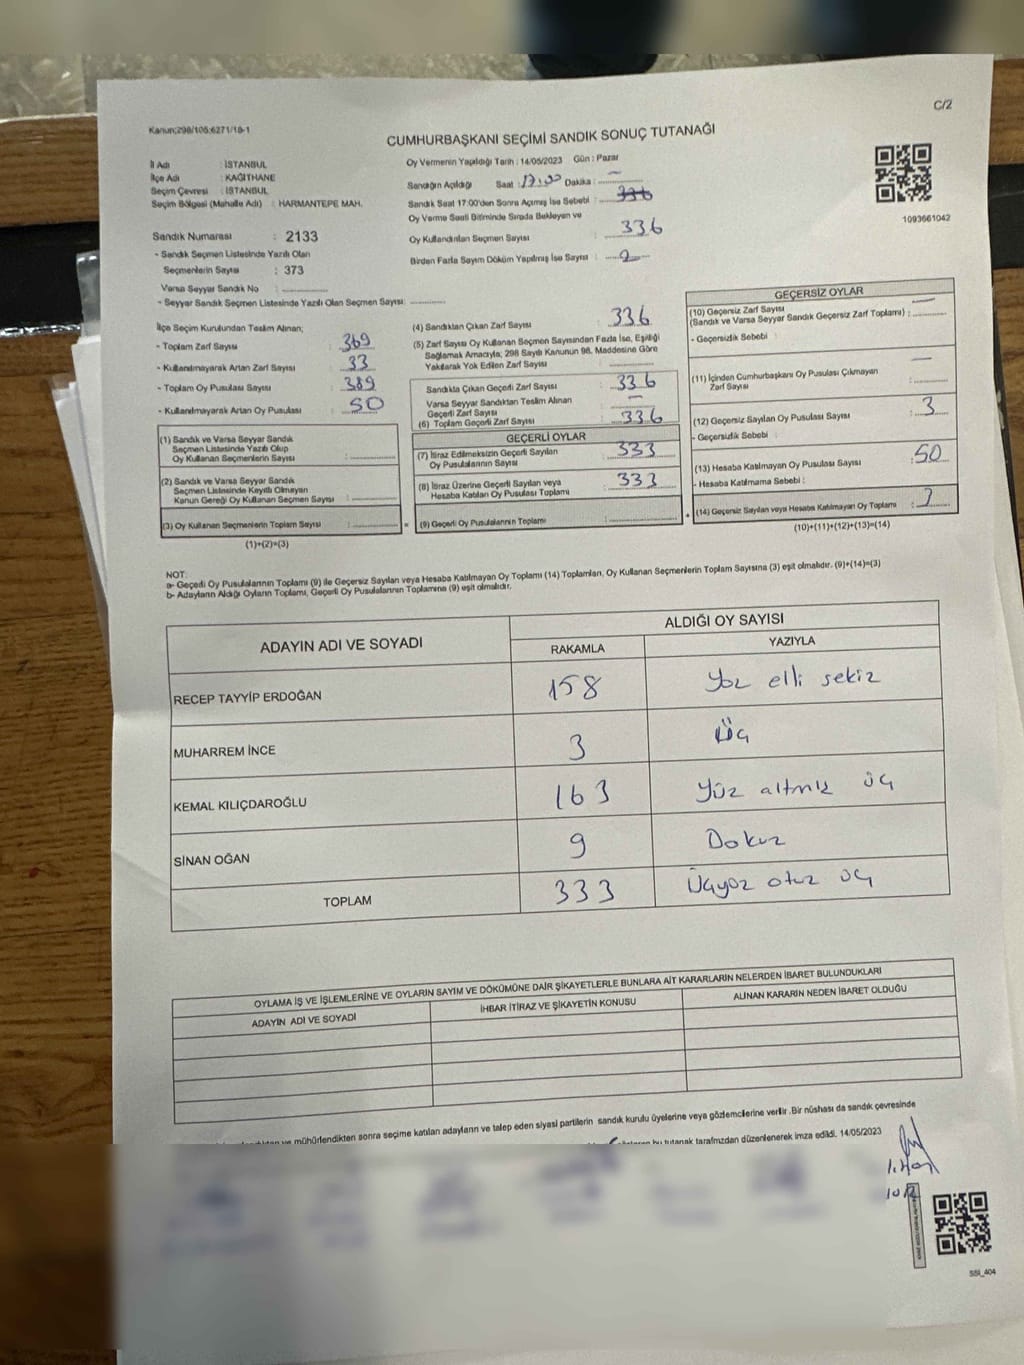 C/2
Kanun;298/105;6271/18-1
CUMHURBAŞKANI SEÇİMİ SANDIK SONUÇ TUTANAĞI
İl Adı : İSTANBUL
İlçe Adı : KAĞITHANE
Seçim Çevresi : İSTANBUL
Seçim Bölgesi (Mahalle Adı) : HARMANTEPE MAH.
Oy Vermenin Yapıldığı Tarih : 14/05/2023 Gün : Pazar
Sandığın Açıldığı Saat : 17:00 Dakika :
Sandık Saat 17:00'den Sonra Açılmış İse Sebebi : 336
Oy Verme Saati Bitiminde Sırada Bekleyen ve
Oy Kullandırılan Seçmen Sayısı : 336
Birden Fazla Sayım Döküm Yapılmış İse Sayısı :
1093661042
Sandık Numarası : 2133
- Sandık Seçmen Listesinde Yazılı Olan
Seçmenlerin Sayısı : 373
Varsa Seyyar Sandık No :
- Seyyar Sandık Seçmen Listesinde Yazılı Olan Seçmen Sayısı:
İlçe Seçim Kurulundan Teslim Alınan;
- Toplam Zarf Sayısı : 369
- Kullanılmayarak Artan Zarf Sayısı : 33
- Toplam Oy Pusulası Sayısı : 389
- Kullanılmayarak Artan Oy Pusulası : 50
(1) Sandık ve Varsa Seyyar Sandık
Seçmen Listesinde Yazılı Olup
Oy Kullanan Seçmenlerin Sayısı :
(2) Sandık ve Varsa Seyyar Sandık
Seçmen Listesinde Kayıtlı Olmayan
Kanun Gereği Oy Kullanan Seçmen Sayısı :
(3) Oy Kullanan Seçmenlerin Toplam Sayısı :
(1)+(2)=(3)
(4) Sandıktan Çıkan Zarf Sayısı : 336
(5) Zarf Sayısı Oy Kullanan Seçmen Sayısından Fazla İse, Eşitliği
Sağlamak Amacıyla; 298 Sayılı Kanunun 98. Maddesine Göre
Yakılarak Yok Edilen Zarf Sayısı :
Sandıkta Çıkan Geçerli Zarf Sayısı : 336
Varsa Seyyar Sandıktan Teslim Alınan
Geçerli Zarf Sayısı :
(6) Toplam Geçerli Zarf Sayısı : 336
GEÇERLİ OYLAR
(7) İtiraz Edilmeksizin Geçerli Sayılan
Oy Pusulalarının Sayısı : 333
(8) İtiraz Üzerine Geçerli Sayılan veya
Hesaba Katılan Oy Pusulası Toplamı : 333
= (9) Geçerli Oy Pusulalarının Toplamı :
GEÇERSİZ OYLAR
(10) Geçersiz Zarf Sayısı
(Sandık ve Varsa Seyyar Sandık Geçersiz Zarf Toplamı) :
- Geçersizlik Sebebi :
(11) İçinden Cumhurbaşkanı Oy Pusulası Çıkmayan
Zarf Sayısı :
(12) Geçersiz Sayılan Oy Pusulası Sayısı : 3
- Geçersizlik Sebebi :
(13) Hesaba Katılmayan Oy Pusulası Sayısı : 50
- Hesaba Katılmama Sebebi :
+ (14) Geçersiz Sayılan veya Hesaba Katılmayan Oy Toplamı :
(10)+(11)+(12)+(13)=(14)
NOT:
a- Geçerli Oy Pusulalarının Toplamı (9) ile Geçersiz Sayılan veya Hesaba Katılmayan Oy Toplamı (14) Toplamları, Oy Kullanan Seçmenlerin Toplam Sayısına (3) eşit olmalıdır. (9)+(14)=(3)
b- Adayların Aldığı Oyların Toplamı, Geçerli Oy Pusulalarının Toplamına (9) eşit olmalıdır.
ADAYIN ADI VE SOYADI ALDIĞI OY SAYISI
RAKAMLA YAZIYLA
RECEP TAYYİP ERDOĞAN 158 Yüz elli sekiz
MUHARREM İNCE 3 Üç
KEMAL KILIÇDAROĞLU 163 Yüz altmış üç
SİNAN OĞAN 9 Dokuz
TOPLAM 333 Üçyüz otuz üç
OYLAMA İŞ VE İŞLEMLERİNE VE OYLARIN SAYIM VE DÖKÜMÜNE DAİR ŞİKAYETLERLE BUNLARA AİT KARARLARIN NELERDEN İBARET BULUNDUKLARI
ADAYIN ADI VE SOYADI İHBAR İTİRAZ VE ŞİKAYETİN KONUSU ALINAN KARARIN NEDEN İBARET OLDUĞU
ve mühürlendikten sonra seçime katılan adayların ve talep eden siyasi partilerin sandık kurulu üyelerine veya gözlemcilerine verilir. Bir nüshası da sandık çevresinde
bu tutanak tarafımızdan düzenlenerek imza edildi. 14/05/2023
SSI_404